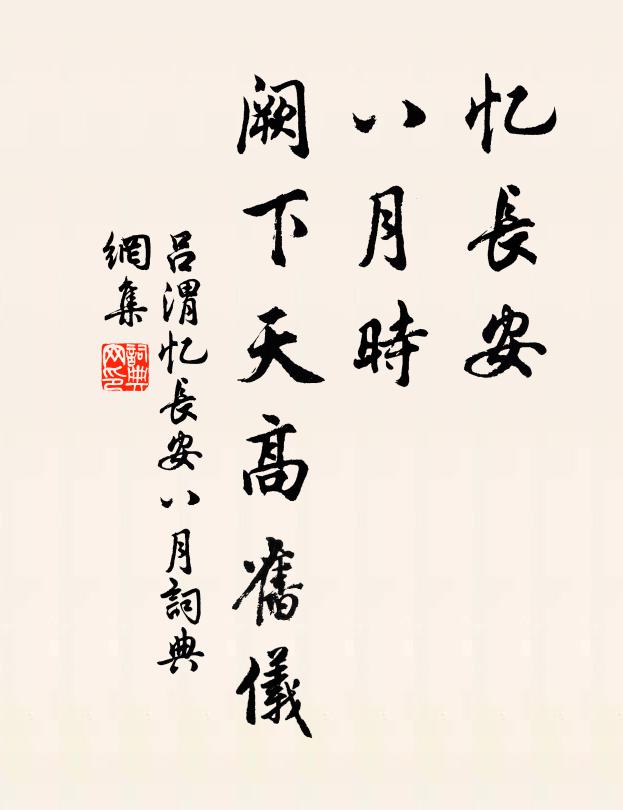 忆長安
八月時
阙下天高舊儀
吕渭忆長安八月詞典
網集
詞典
网印